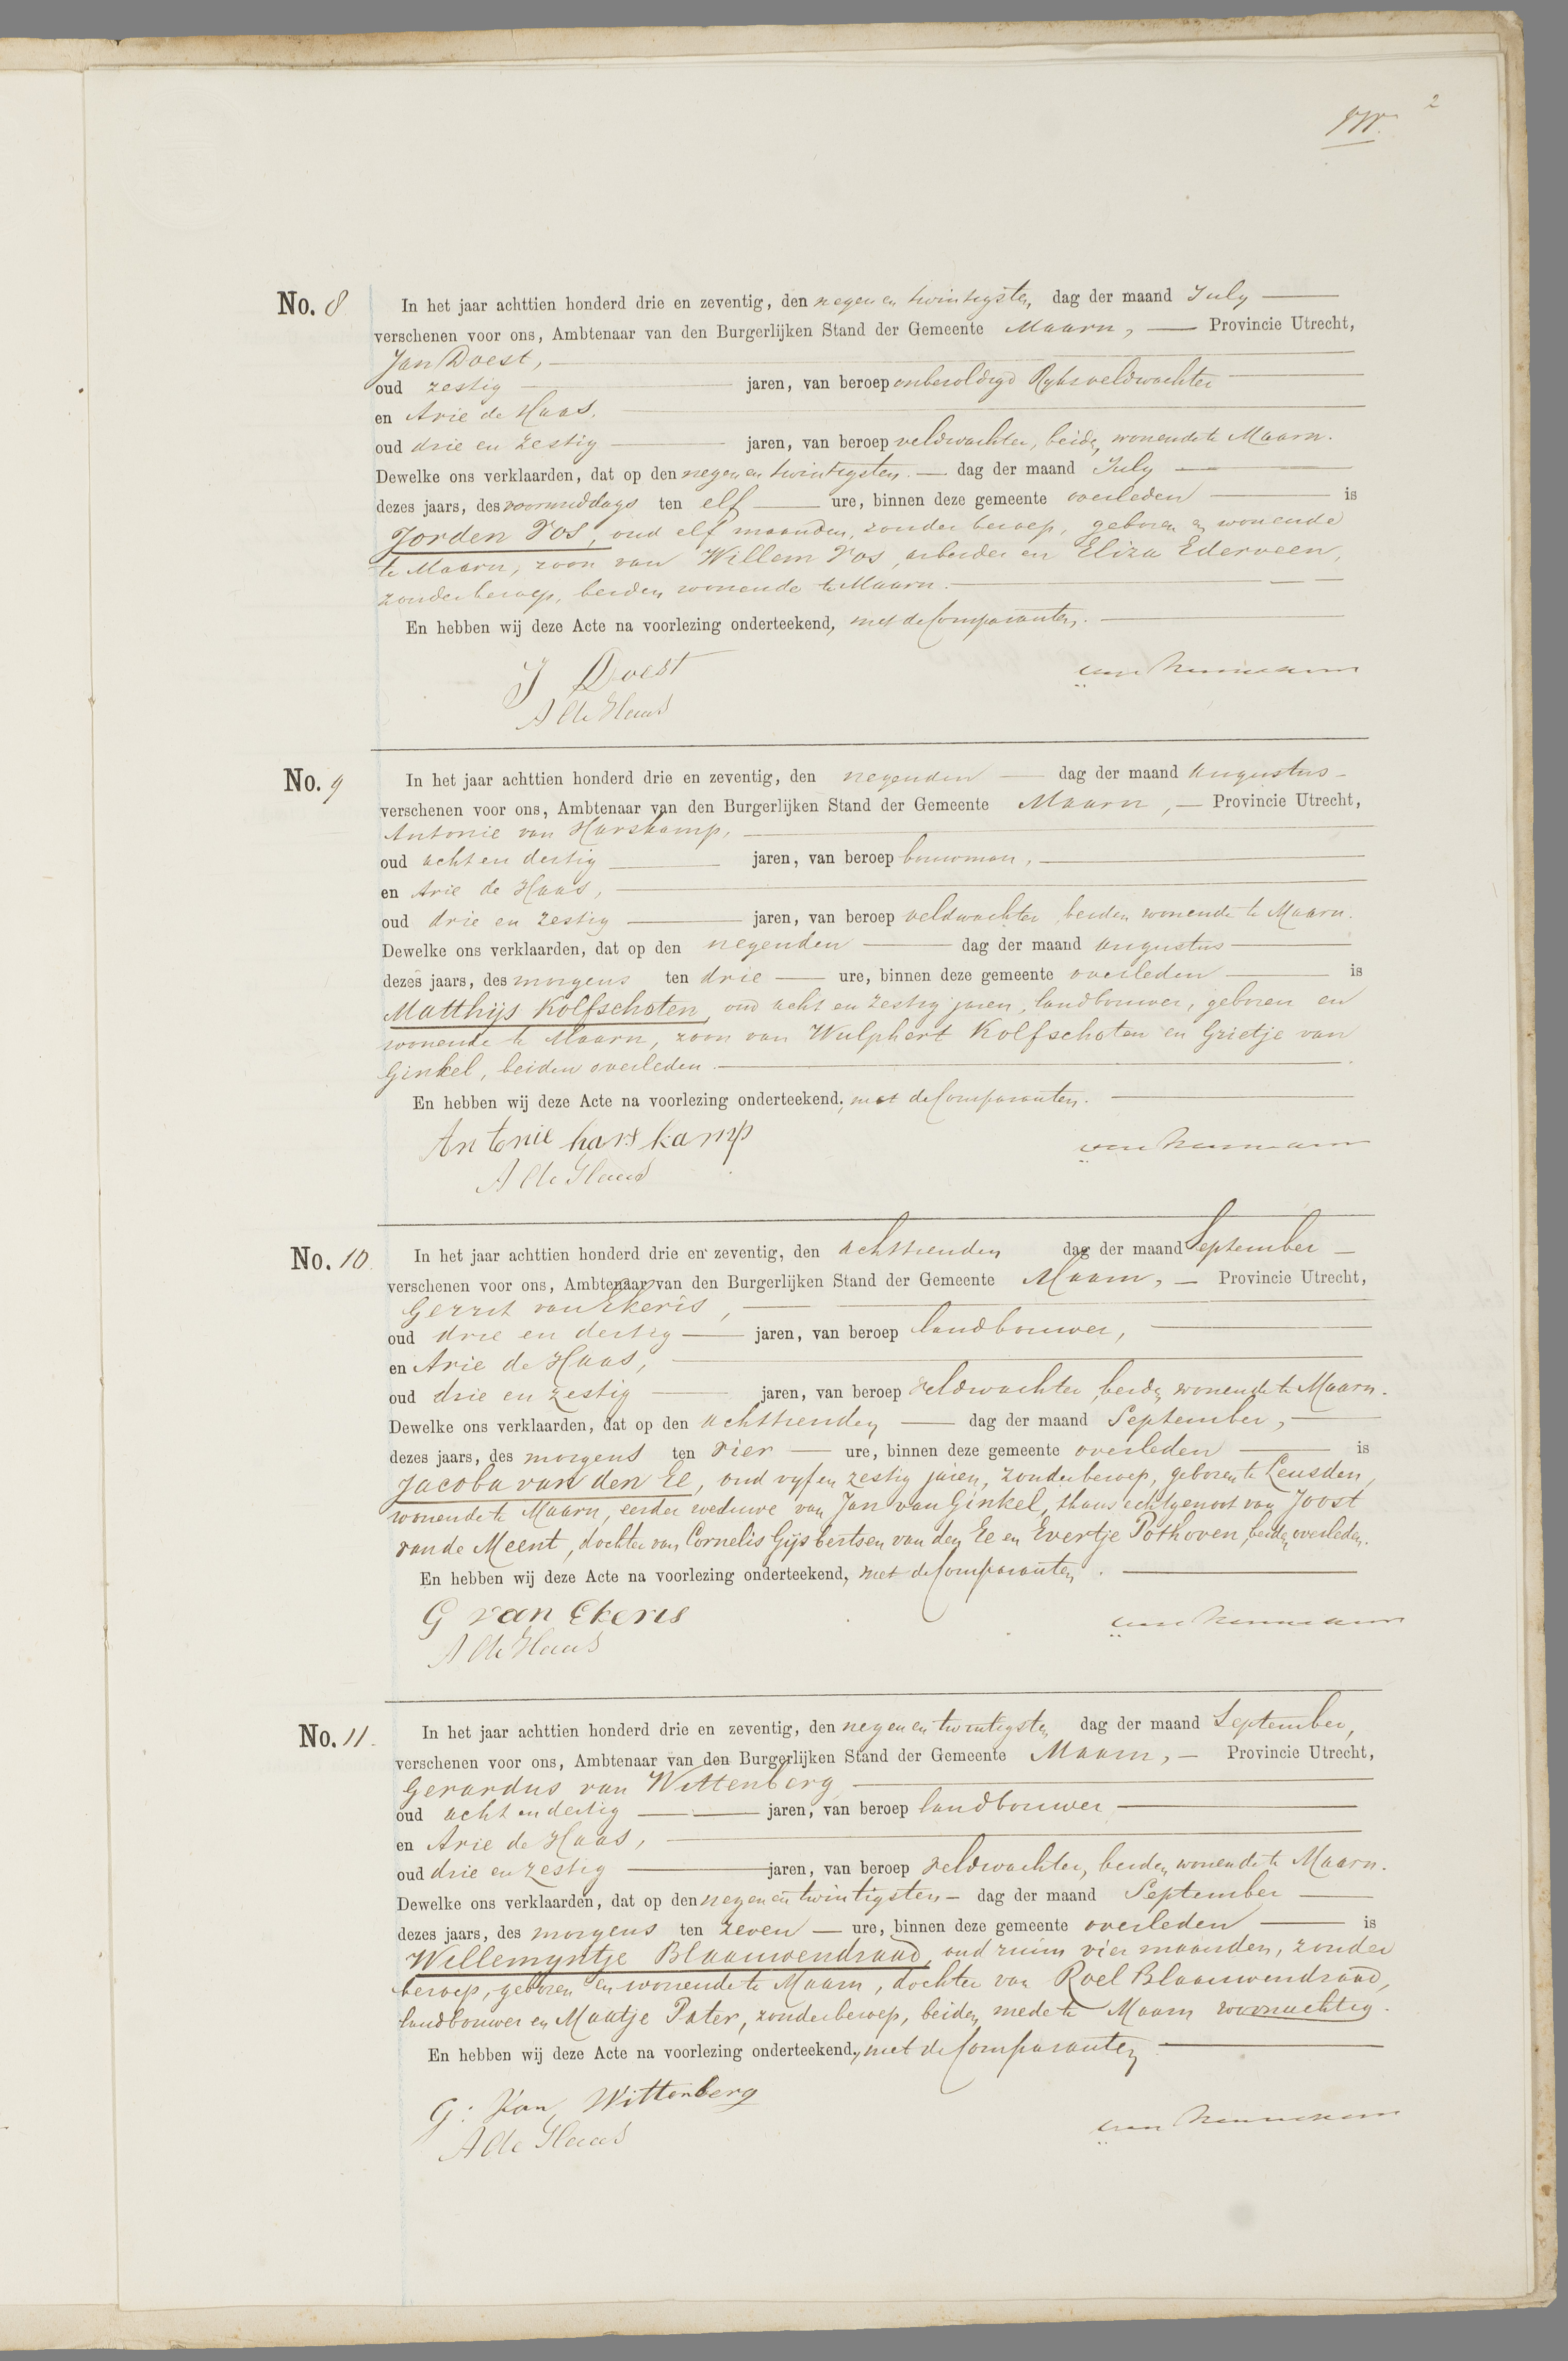 2
No. 8 In het jaar achttien honderd drie en zeventig, den negen en twintigsten dag der maand July
verschenen voor ons, Ambtenaar van den Burgerlijken Stand der Gemeente Maarn, Provincie Utrecht,
Jan Doest,
oud zestig jaren, van beroep onbezoldigd Ryksveldwachter
en Arie de Haas,
oud drie en zestig jaren, van beroep veldwachter, beiden wonende te Maarn.
Dewelke ons verklaarden, dat op den negen en twintigsten dag der maand July
dezes jaars, des voormiddags ten elf ure, binnen deze gemeente overleden is
Jorden Vos, oud elf maanden, zonder beroep, geboren en wonende
te Maarn, zoon van Willem Vos, arbeider en Eliza Ederveen,
zonder beroep, beiden wonende te Maarn.
En hebben wij deze Acte na voorlezing onderteekend, met de Comparanten.
J Doest
A de Haas
No. 9 In het jaar achttien honderd drie en zeventig, den negenden dag der maand Augustus
verschenen voor ons, Ambtenaar van den Burgerlijken Stand der Gemeente Maarn, Provincie Utrecht,
Antonie van Harskamp,
oud acht en dertig jaren, van beroep bouwman,
en Arie de Haas,
oud drie en zestig jaren, van beroep veldwachter, beiden wonende te Maarn.
Dewelke ons verklaarden, dat op den negenden dag der maand Augustus
dezes jaars, des morgens ten drie ure, binnen deze gemeente overleden is
Matthijs Kolfschoten, oud acht en zestig jaren, landbouwer, geboren en
wonende te Maarn, zoon van Wulphert Kolfschoten en Grietje van
Ginkel, beiden overleden.
En hebben wij deze Acte na voorlezing onderteekend, met de Comparanten.
Antonie harskamp
A de Haas
No. 10. In het jaar achttien honderd drie en zeventig, den achttienden dag der maand September
verschenen voor ons, Ambtenaar van den Burgerlijken Stand der Gemeente Maarn, Provincie Utrecht,
Gerrit van Ekeris,
oud drie en dertig jaren, van beroep landbouwer,
en Arie de Haas,
oud drie en zestig jaren, van beroep veldwachter, beiden wonende te Maarn.
Dewelke ons verklaarden, dat op den achttienden dag der maand September,
dezes jaars, des morgens ten vier ure, binnen deze gemeente overleden is
Jacoba van den Ee, oud vyf en zestig jaren, zonder beroep, geboren te Leusden,
wonende te Maarn, eerder weduwe van Jan van Ginkel, thans echtgenoot van Joost
van de Meent, dochter van Cornelis Gijsbertsen van den Ee en Evertje Pothoven, beiden overleden.
En hebben wij deze Acte na voorlezing onderteekend, met de Comparanten.
G van Ekeris
A de Haas
No. 11. In het jaar achttien honderd drie en zeventig, den negen en twintigsten dag der maand September,
verschenen voor ons, Ambtenaar van den Burgerlijken Stand der Gemeente Maarn, Provincie Utrecht,
Gerardus van Wittenberg
oud acht en dertig jaren, van beroep landbouwer
en Arie de Haas,
oud drie en zestig jaren, van beroep veldwachter, beiden wonende te Maarn.
Dewelke ons verklaarden, dat op den negen en twintigsten dag der maand September
dezes jaars, des morgens ten zeven ure, binnen deze gemeente overleden is
Willemyntje Blaauwendraad, oud ruim vier maanden, zonder
beroep, geboren en wonende te Maarn, dochter van Roel Blaauwendraad,
landbouwer en Maatje Pater, zonder beroep, beiden mede te Maarn woonachtig.
En hebben wij deze Acte na voorlezing onderteekend, met de Comparanten
G: Van Wittenberg
A de Haas